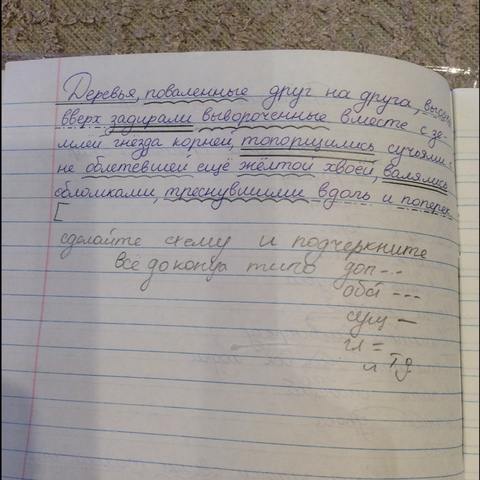 Деревья, поваленные друг на друга, высоко
вверх задирали вывороченные вместе с зе-
млей гнезда корней, топорщились сучьями с
не облетевшей ещё жёлтой хвоей, валялись
обломками, треснувшими вдоль и поперек.
[
сделайте схему и подчеркните
все до конца типо доп-..
обст ---
сущ —
гл =
и тд.